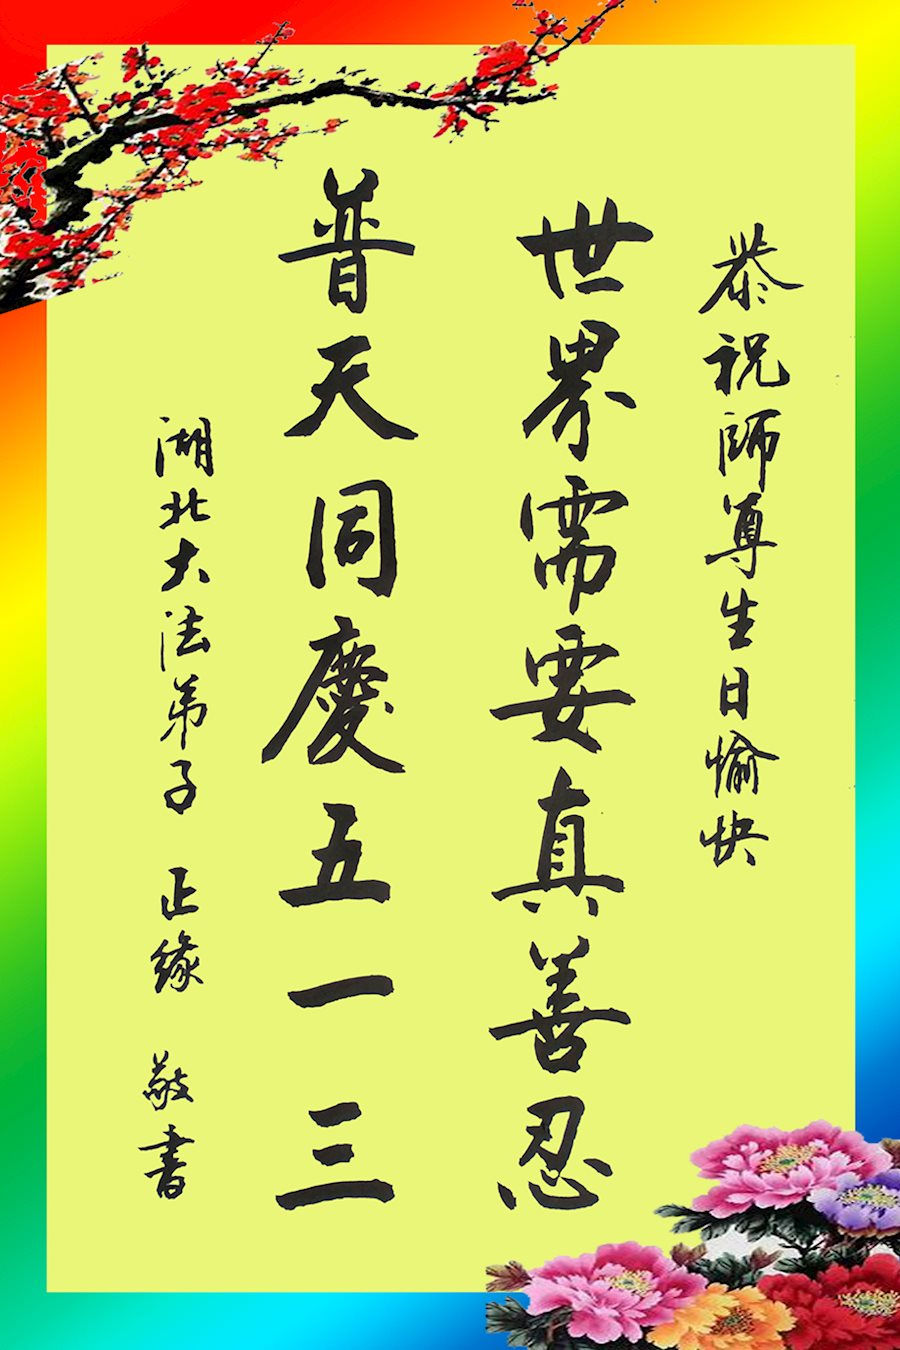 恭祝師尊生日愉快
世界需要真善忍
普天同慶五一三
湖北大法弟子 正緣 敬書